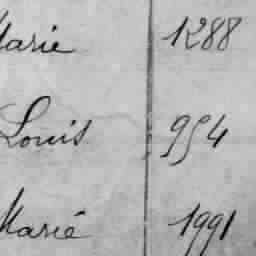 Marie 1288
Louis 954
Marié 1991